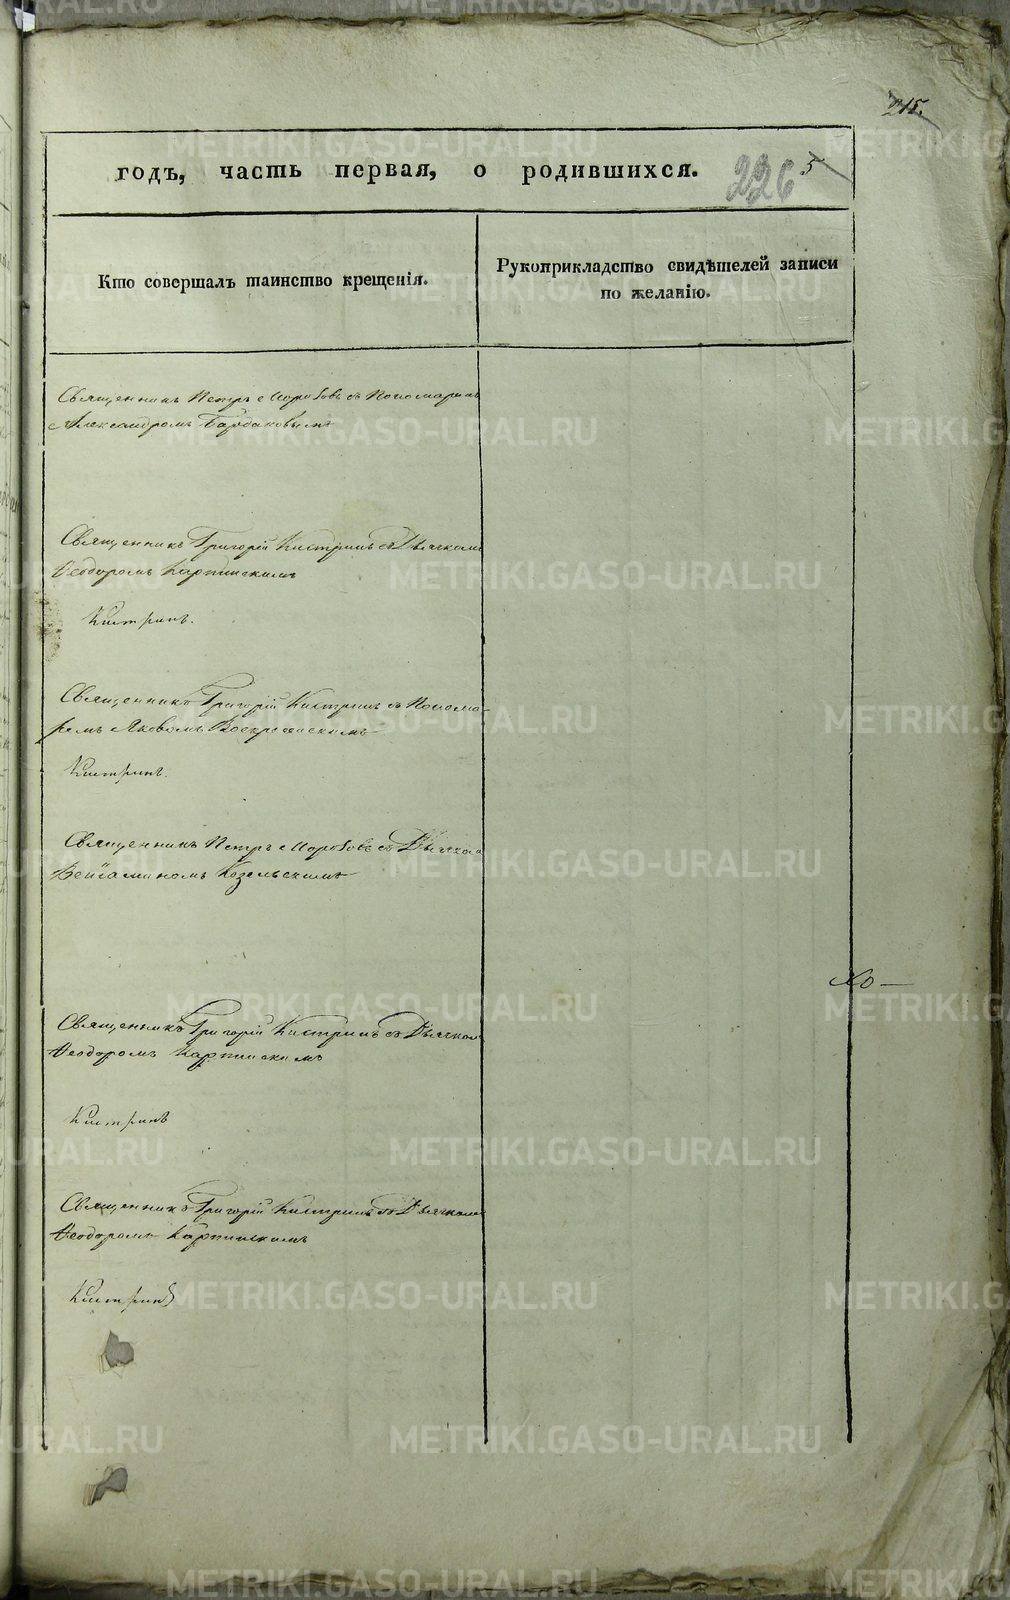 215.
годъ, часть первая, о родившихся.
226 5
Кто совершалъ таинство крещенія.
Рукоприкладство свидѣтелей записи
по желанію.
Священникъ Петръ съ Пономаремъ
Александромъ
Священникъ Григорій Кистринъ съ Дьячкомъ
Ѳеодоромъ Карпинскимъ
Кистринъ.
Священникъ Григорій Кистринъ съ Понома-
ремъ Яковомъ Воскресенскимъ
Кистринъ.
Священникъ Петръ съ Дьячкомъ
Веніаминомъ Козельскимъ
Священникъ Григорій Кистринъ съ Дьячкомъ
Ѳеодоромъ Карпинскимъ
Кистринъ
Священникъ Григорій Кистринъ съ Дьячкомъ
Ѳеодоромъ Карпинскимъ
Кистринъ
METRIKI.GASO-URAL.RU